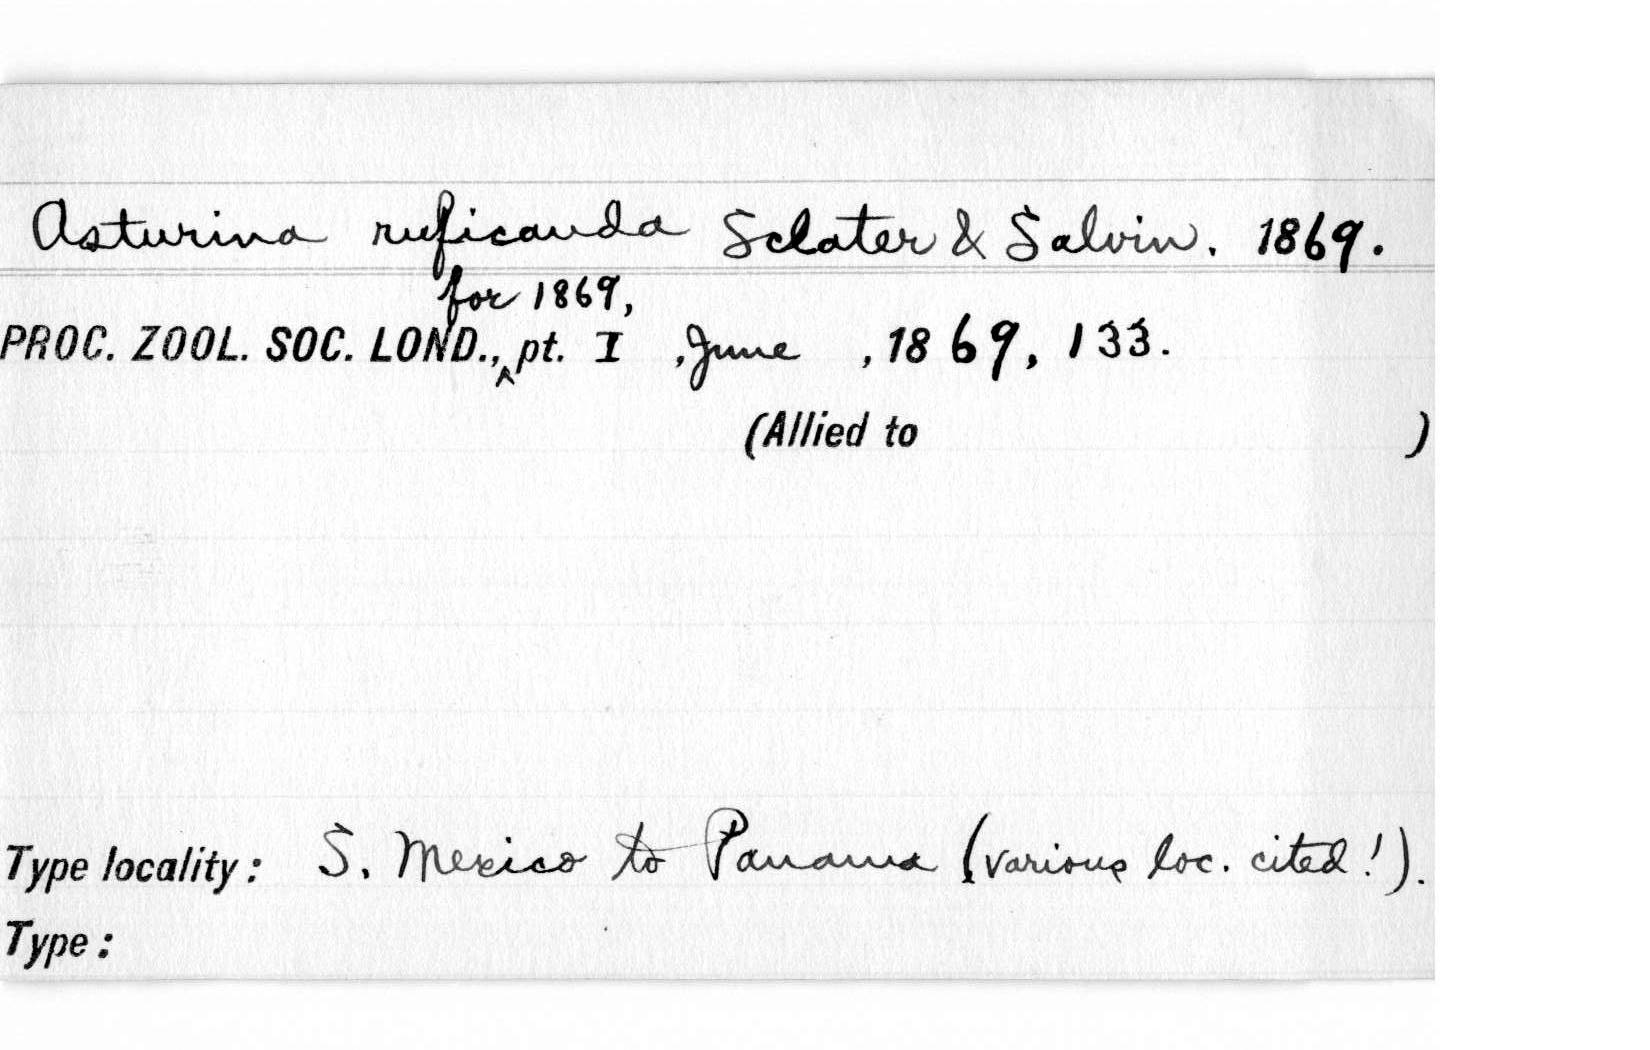 Asturina ruficauda Sclater & Salvin. 1869.
for 1869,
PROC. ZOOL. SOC. LOND., ^ pt. I , June , 1869, 133.
(Allied to )
Type locality: S. Mexico to Panama (various loc. cited!).
Type: